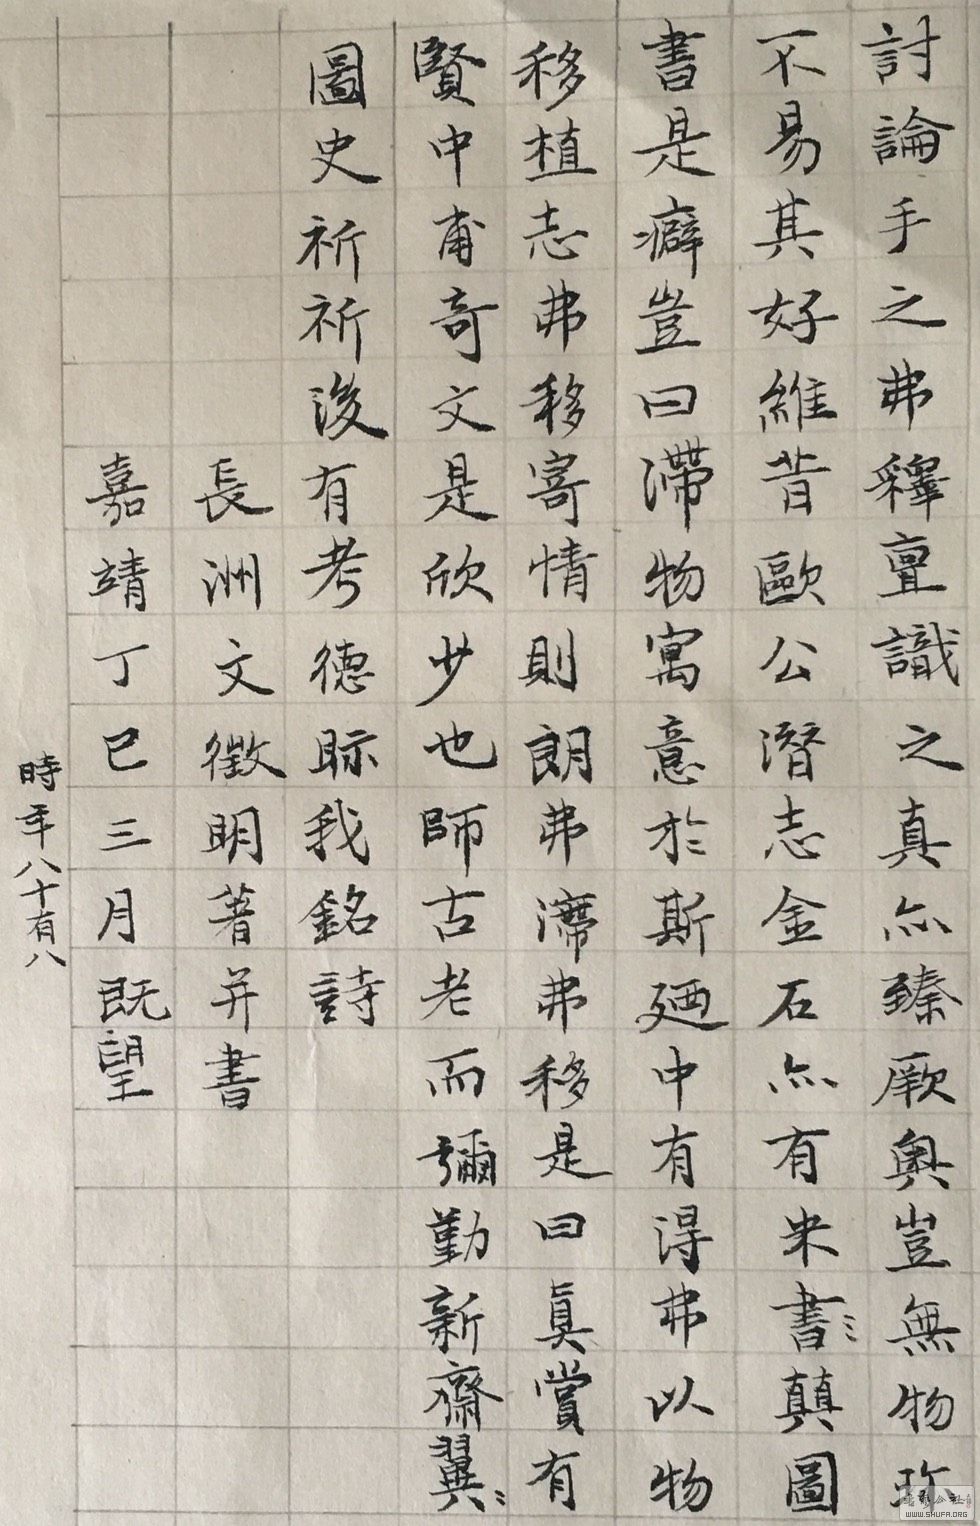 討論手之弗釋亶識之真亦臻厥奧豈無物珎
不易其好維昔歐公潛志金石亦有米書〻顛圖
書是癖豈曰滯物寓意於斯廼中有得弗以物
移植志弗移寄情則朗弗滯弗移是曰真賞有
賢中甫奇文是欣少也師古老而彌勤新齋翼〻
圖史祈祈後有考德眎我銘詩
長洲文徵明著并書
嘉靖丁巳三月既望
時年八十有八
WWW.SHUFA.ORG